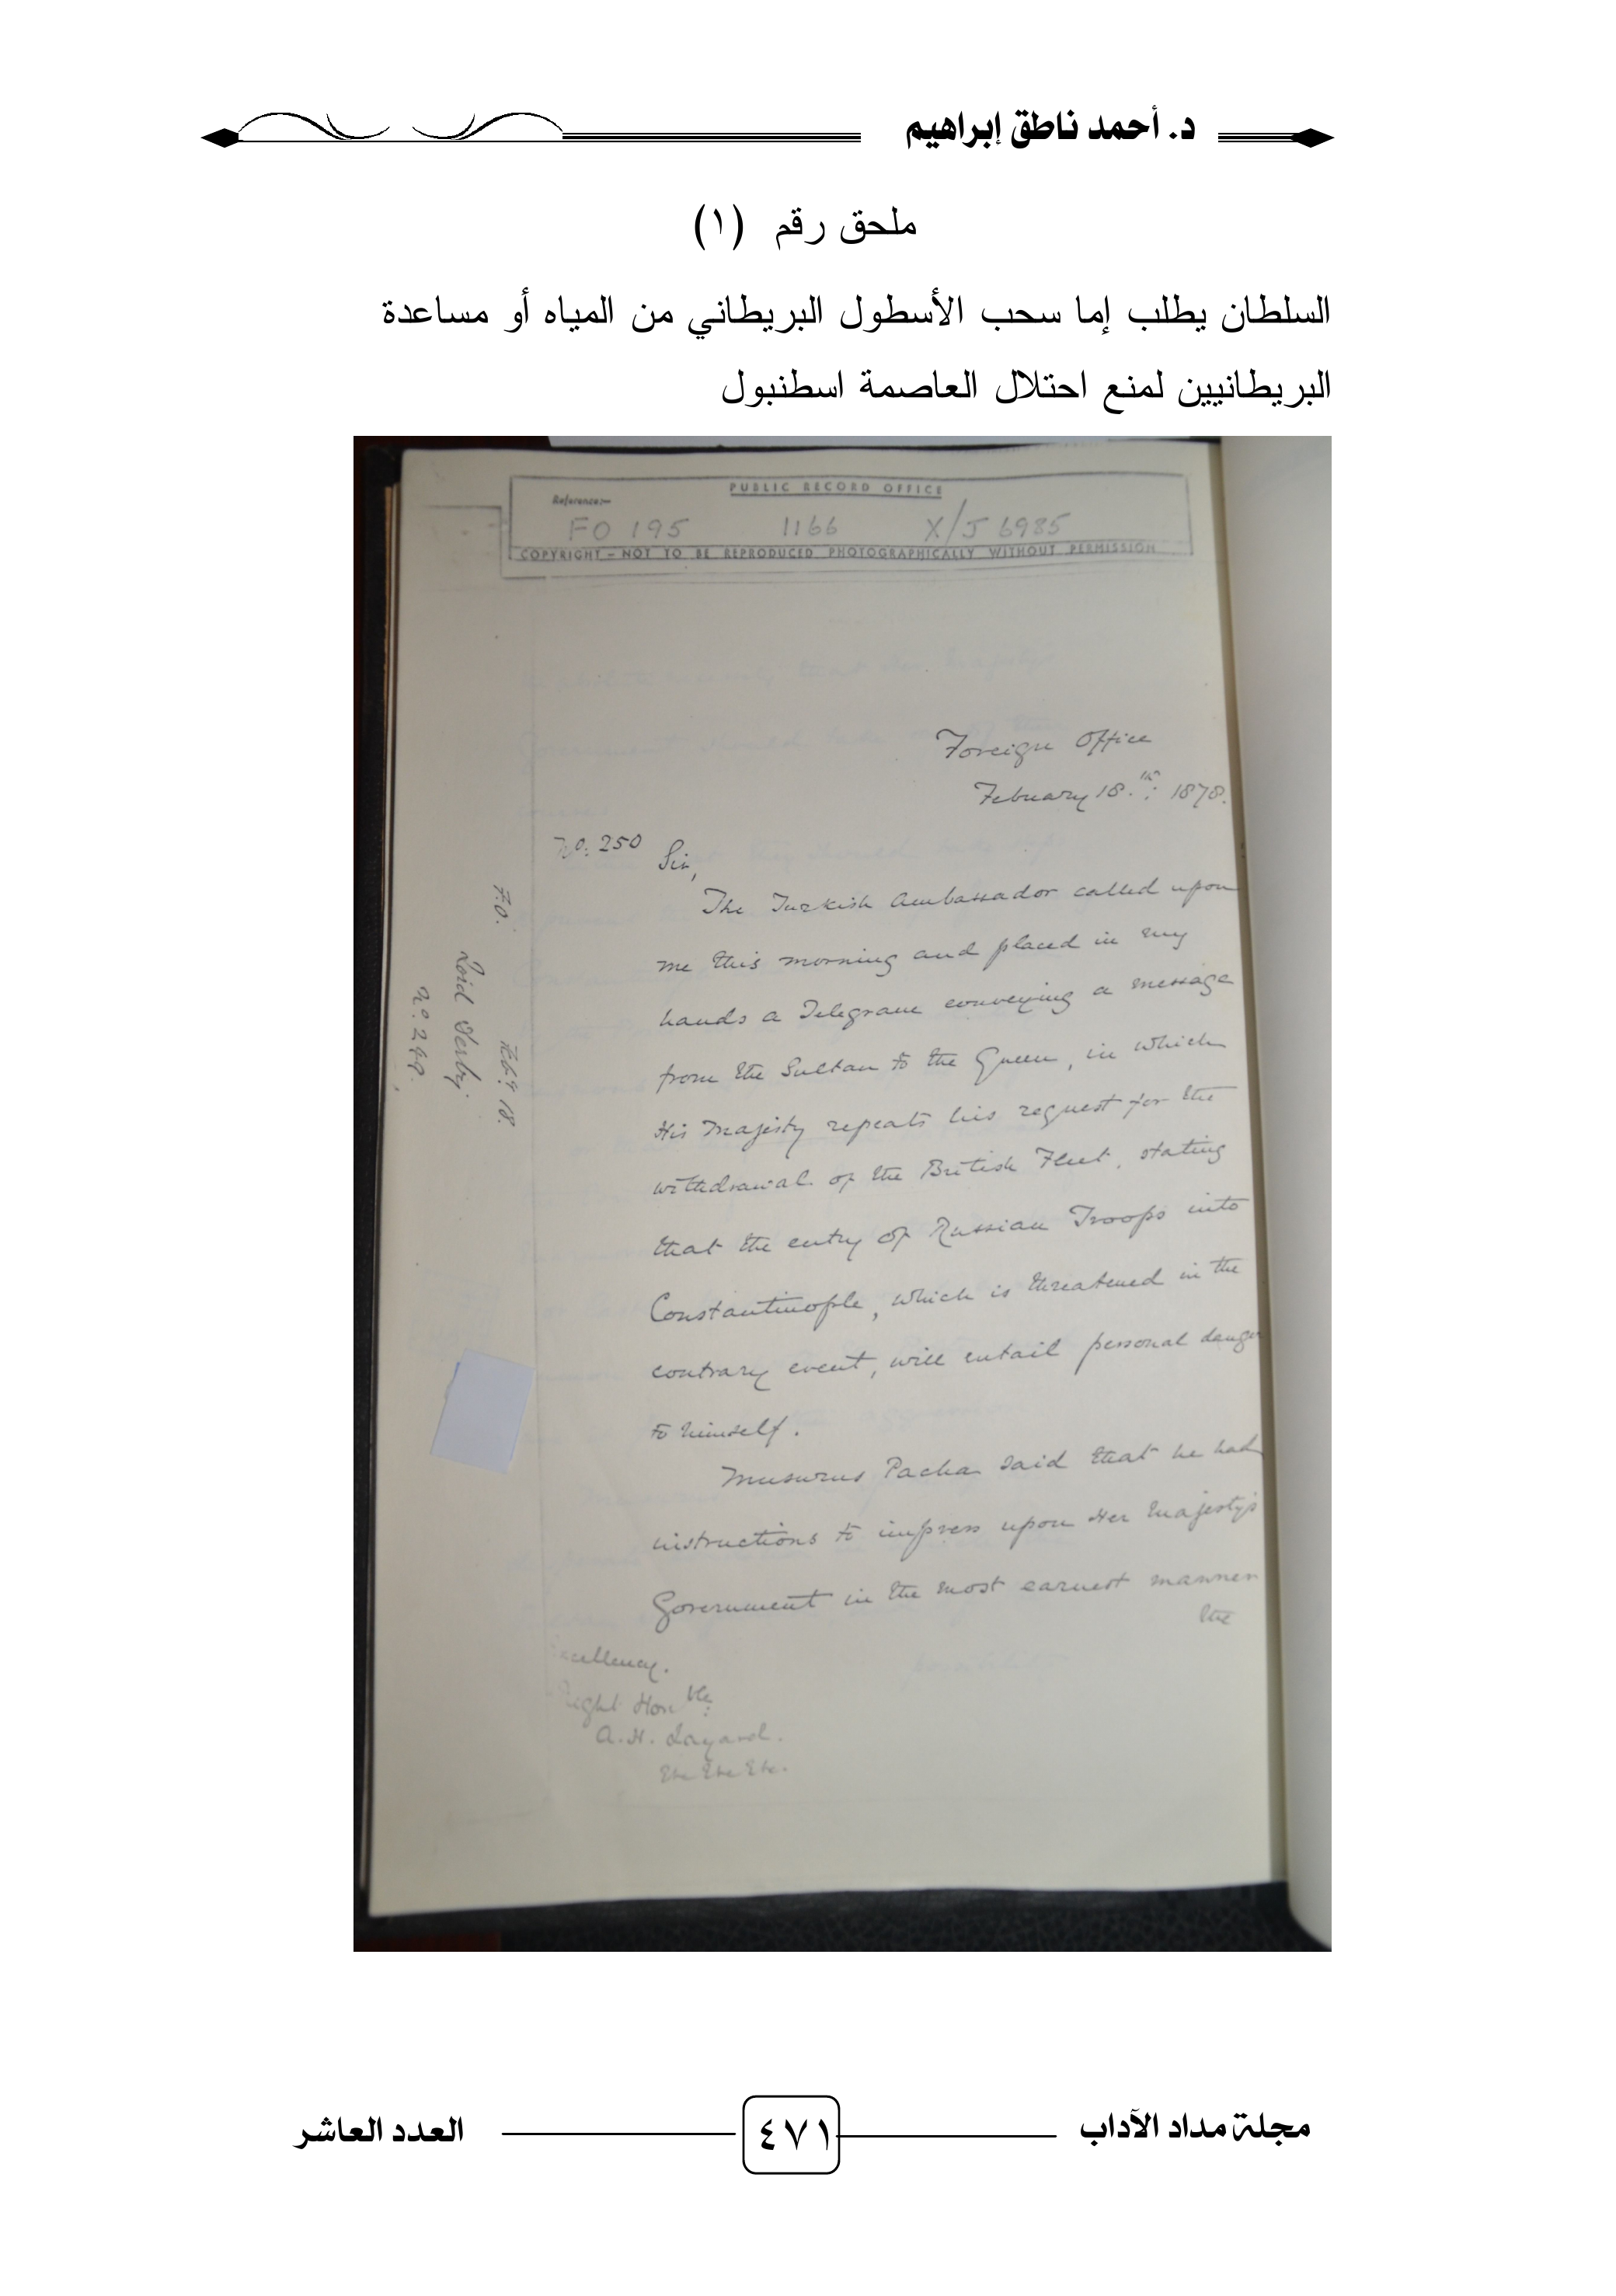 د. أحمد ناطق إبراهيم
ملحق رقم (١)
السلطان يطلب إما سحب الأسطول البريطاني من المياه أو مساعدة
البريطانيين لمنع احتلال العاصمة اسطنبول
PUBLIC RECORD OFFICE
Reference:-
FO 195 1166 X/J 6985
COPYRIGHT - NOT TO BE REPRODUCED PHOTOGRAPHICALLY WITHOUT PERMISSION
Foreign Office
February 18.th: 1878.
No: 250 Sir,
The Turkish Ambassador called upon
me this morning and placed in my
hands a Telegram conveying a message
from the Sultan to the Queen, in which
His Majesty repeats his request for the
withdrawal of the British Fleet, stating
that the entry of Russian Troops into
Constantinople, which is threatened in the
contrary event, will entail personal dange
to himself.
Musurus Pacha said that he had
instructions to impress upon Her Majesty's
Government in the most earnest manner
the
xcellency.
Right Honble:
A. H. Layard.
Etc Etc Etc.
F.O. Feby 18.
Lord Derby
No. 249.
مجلة مداد الآداب
٤٧١
العدد العاشر